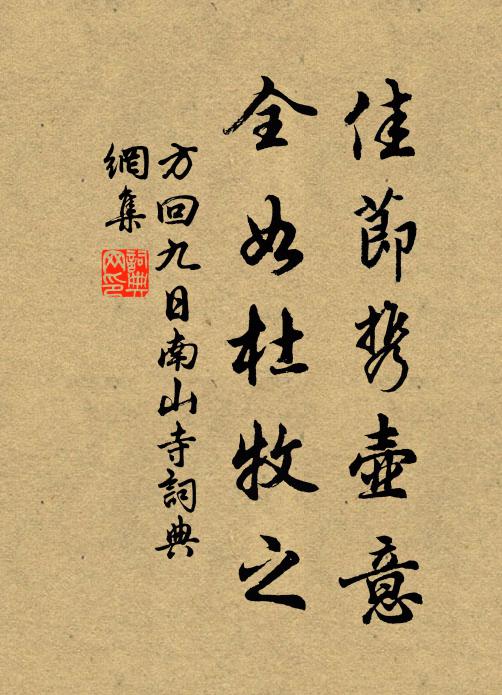 佳節携壺意
全如杜牧之
方回九日南山寺詞典
網集
詞典網印